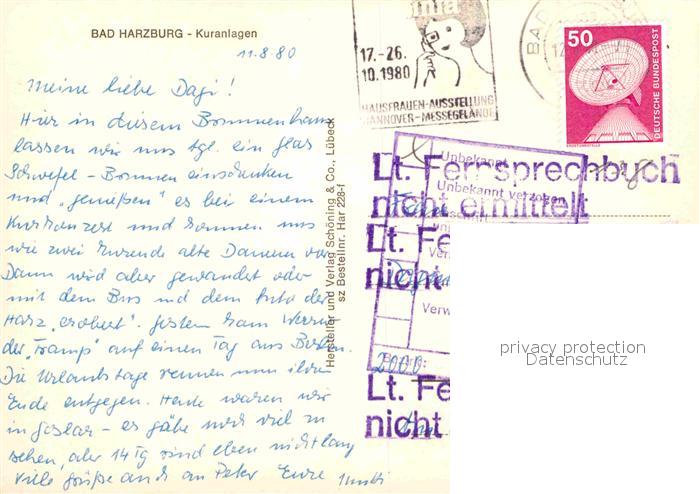 BAD HARZBURG - Kuranlagen
11.8.80
Meine liebe Dagi!
Hier in diesem Brunnenhaus
lassen wir uns tgl. ein Glas
Schwefel-Brunnen einschenken
und „genießen" es bei einem
Kurkonzert und kommen uns
wie zwei kurende alte Damen vor.
Dann wird aber gewandert oder
mit dem Bus und dem Auto der
Harz „erobert". Gestern kam
der „Tramp" auf einen Tag aus
Die Urlaubstage rennen nun ihrem
Ende entgegen. Heute waren wir
in Goslar - es gäbe noch viel zu
sehen, aber 14 Tg sind eben nicht lang
Viele Grüße auch an Peter Eure Mutti
Hersteller und Verlag Schöning & Co., Lübeck
sz Bestellnr. Har 228-f
infa
17.-26.
10.1980
HAUSFRAUEN-AUSSTELLUNG
HANNOVER-MESSEGELÄNDE
BAD
50
DEUTSCHE BUNDESPOST
ERDFUNKSTELLE
Unbekannt
Unbekannt verzogen
Lt. Fernsprechbuch
nicht ermittelt
Lt. Fe
nicht
Verw
2000
Lt. Fe
nicht
privacy protection
Datenschutz